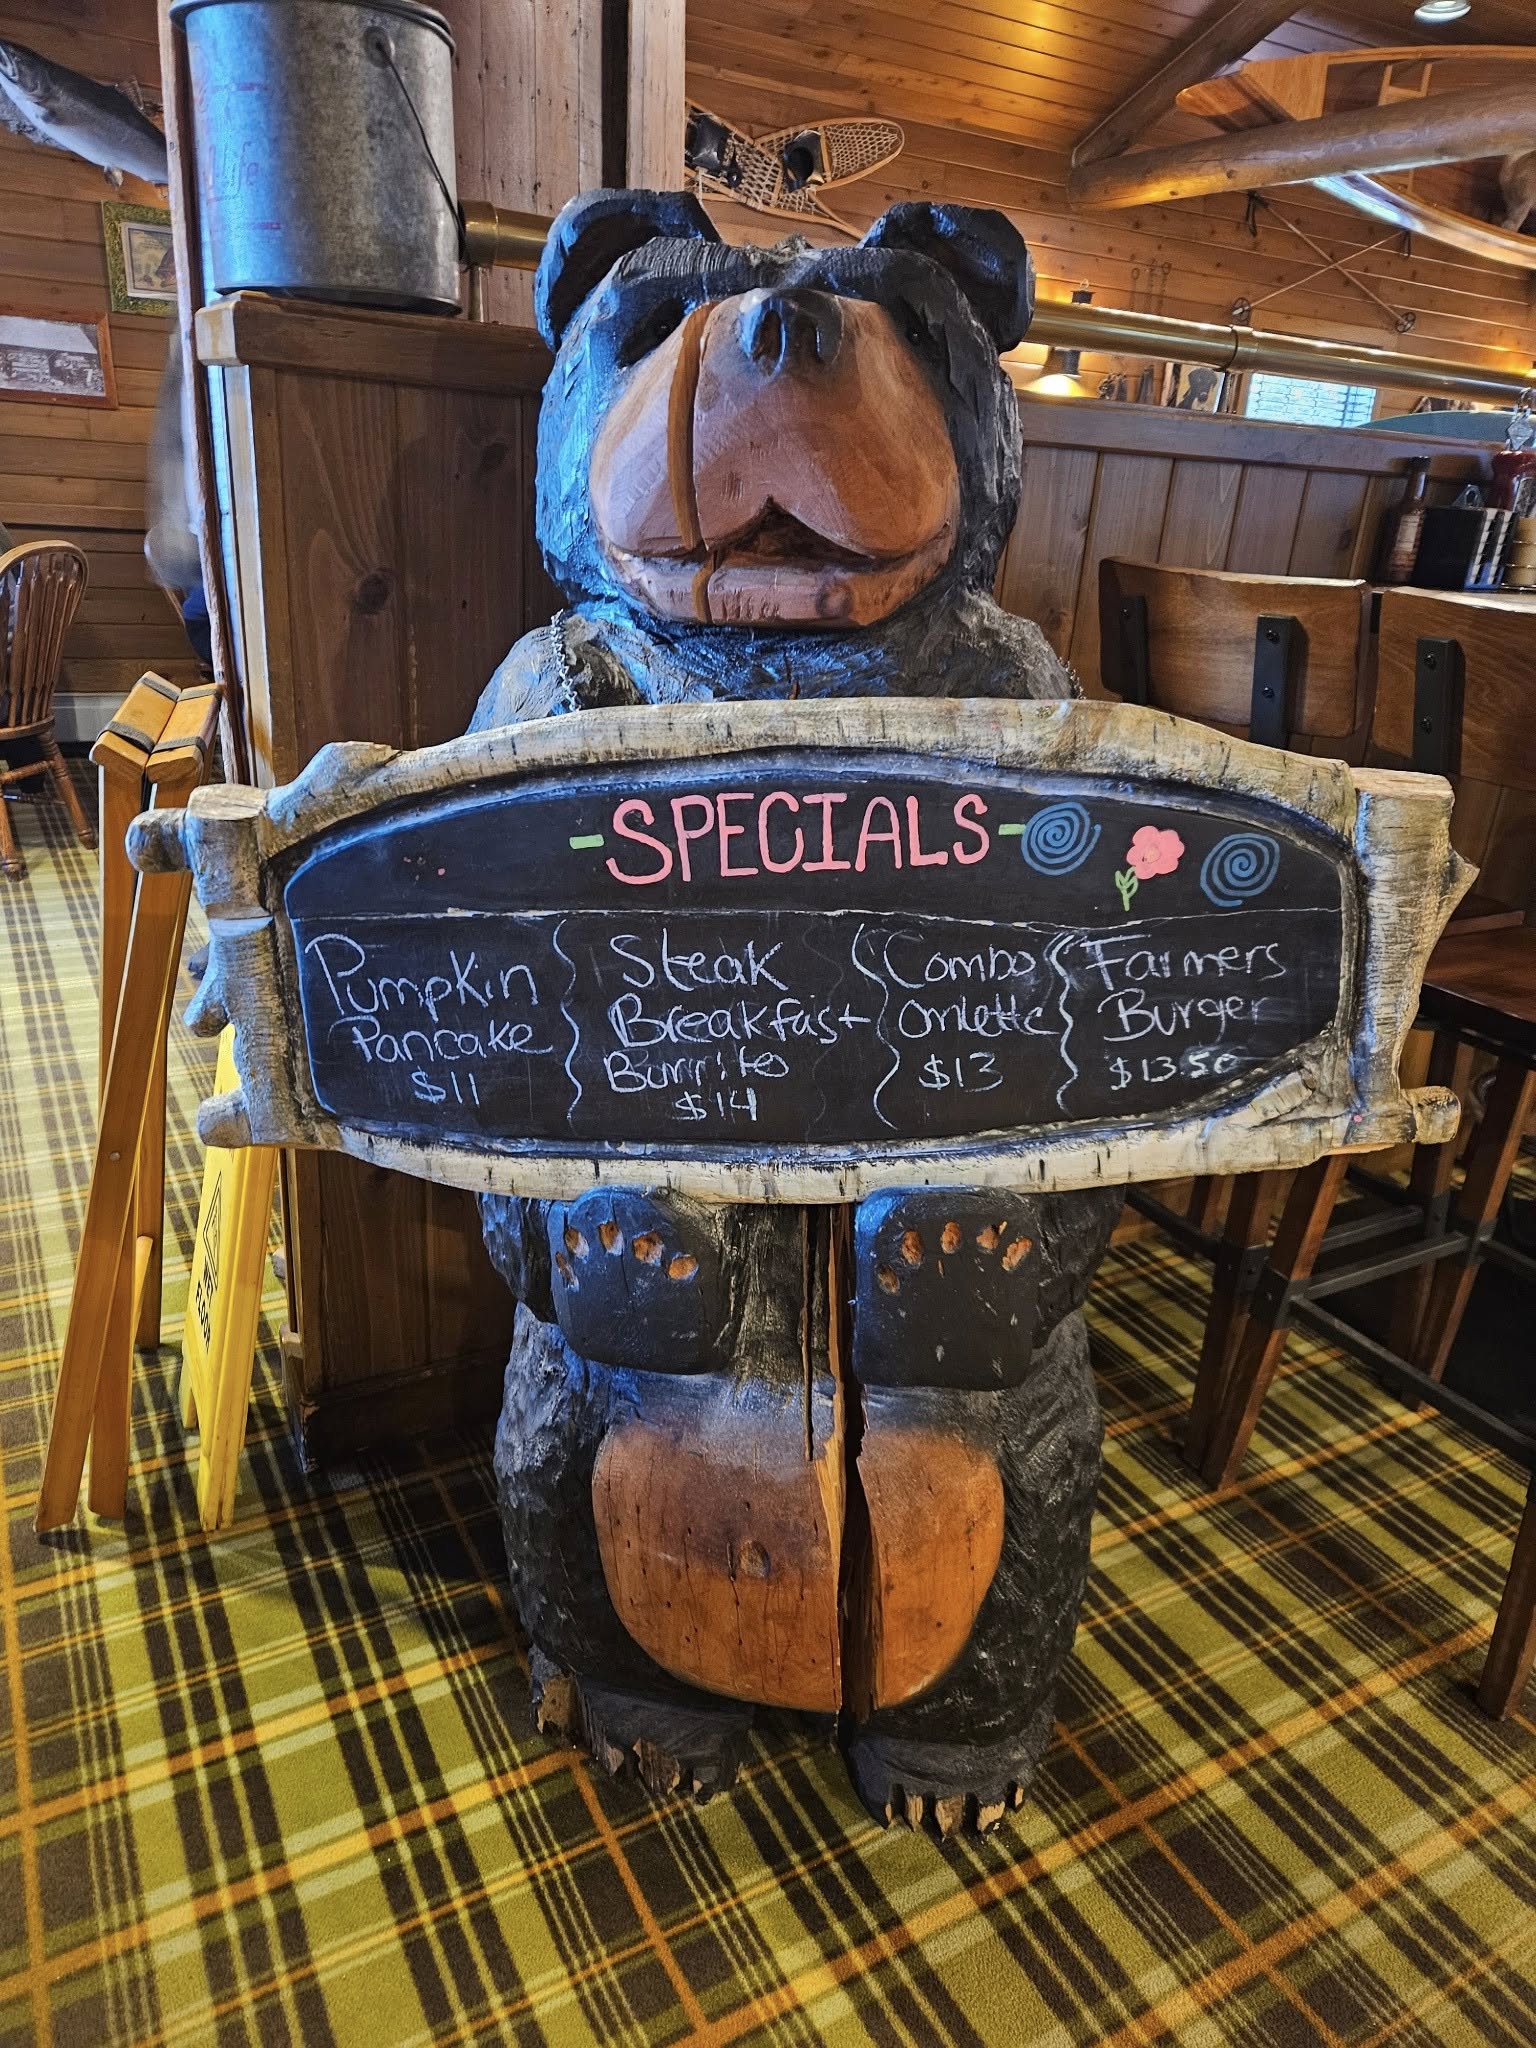 -SPECIALS-
Pumpkin
Pancake
$11
Steak
Breakfast
Burrito
$14
Combo
Omlette
$13
Farmers
Burger
$13.50
WET
FLOOR